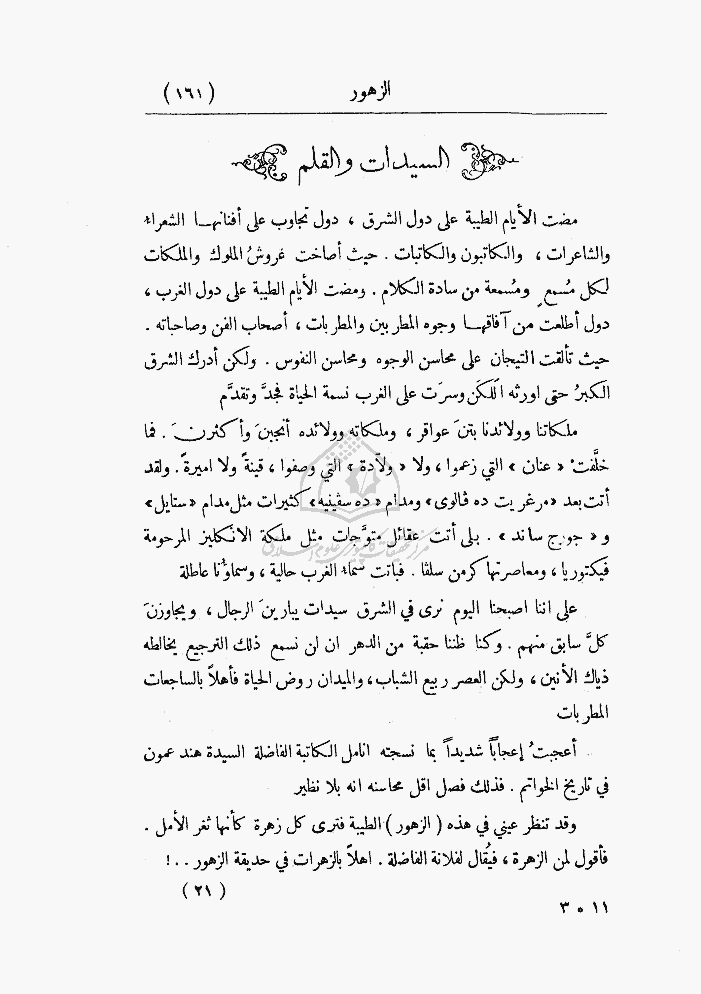 الزهور
( ١٦١ )
السيدات والقلم
مضت الأيام الطيبة على دول الشرق ، دول تجاوب على أفنانهـا الشعراء
والشاعرات ، والكاتبون والكاتبات . حيث أصاخت عروشُ الملوك والملكات
لكل مُسمعٍ ومُسمعة من سادة الكلام . ومضت الأيام الطيبة على دول الغرب ،
دول أطلعت من آفاقهـا وجوه المطربين والمطربات ، أصحاب الفن وصاحباته .
حيث تألقت التيجان على محاسن الوجوه ومحاسن النفوس . ولكن أدرك الشرق
الكبرُ حتى اورثه اللَكَن وسرَت على الغرب نسمة الحياة فجدَّ وتقدَّم
ملكاتنا وولائدنا بتنَ عواقر ، وملكاته وولائده أنجبنَ وأكثرنَ . فما
خلَّفت « عنان » التي زعموا ، ولا « ولاّدة » التي وصفوا ، قينةً ولا اميرةً . ولقد
أتت بعد «مرغريت ده ڤالوى» ومدام «ده سڤينيه» كثيرات مثل مدام «ستايل»
و « جورج ساند » . بلى أتت عقائل متوَّجات مثل ملكة الانكليز المرحومة
فيكتوريا ، ومعاصرتها كرمن سلڤا . فباتت سماء الغرب حالية ، وسماوُنا عاطلة
على اننا اصبحنا اليوم نرى في الشرق سيدات يبارينَ الرجال ، ويجاوزنَ
كلَّ سابق منهم . وكنا ظننا حقبة من الدهر ان لن نسمع ذلك الترجيع يخالطه
ذياك الأنين ، ولكن العصر ربيع الشباب ، والميدان روض الحياة فأهلاً بالساجعات
المطربات
أعجبتُ إعجاباً شديداً بما نسجته انامل الكاتبة الفاضلة السيدة هند عمون
في تاريخ الخواتم . فذلك فصل اقل محاسنه انه بلا نظير
وقد تنظر عيني في هذه ( الزهور ) الطيبة فترى كل زهرة كأنها ثغر الأمل .
فأقول لمن الزهرة ، فيُقال لفلانة الفاضلة . اهلاً بالزهرات في حديقة الزهور . . !
( ٢١ )
١١ ٠ ٣